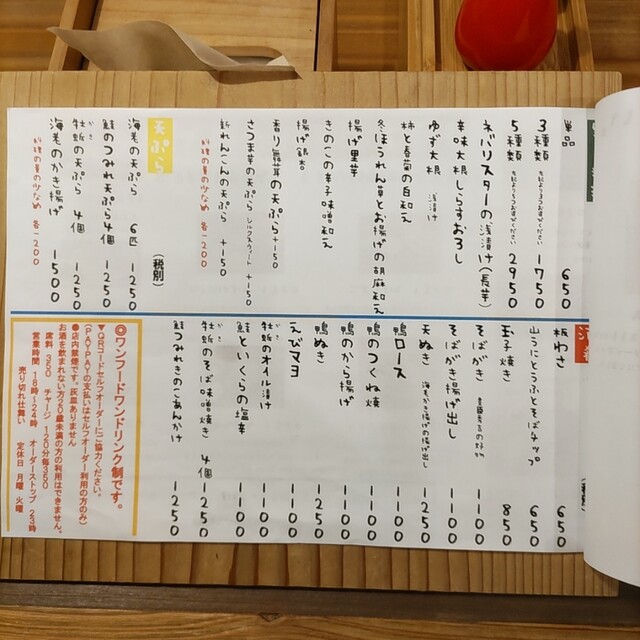 単品 650
3種類 1750
5種類 2950
ネバリスターの浅漬け(長芋)
辛味大根しらすおろし
ゆず大根 浅漬け
柿と春菊の白和え
冬ほうれん草とお揚げの胡麻和え
揚げ里芋
きのこの辛子味噌和え
揚げ銀杏
香り舞茸の天ぷら +150
さつま芋の天ぷら シルクスイート +150
新れんこんの天ぷら +150
お料理の量の少なめ 各-200
(税別)
天ぷら
海老の天ぷら 6匹 1250
鮭のつみれ天ぷら4個 1250
牡蛎の天ぷら 4個 1250
海老のかき揚げ 1500
お料理の量の少なめ 各-200
板わさ 650
山うにとうふとそばチップ 650
玉子焼き 850
そばがき 1100
そばがき揚げ出し 1100
天ぬき 海老かき揚げの揚げ出し 1250
鴨ロース 1100
鴨のつくね焼 1100
鴨のから揚げ 1100
鴨ぬき 1250
えびマヨ 1100
牡蛎のオイル漬け 1100
鮭といくらの塩辛 1100
牡蛎のそば味噌焼き 4個 1250
鮭つみれきのこあんかけ 1250
◎ワンフードワンドリンク制です。
▼QRコードセルフオーダーにご協力ください。
(PAYPAYの支払いはセルフオーダー利用の方のみ)
●店内禁煙です。灰皿ありません
お酒を飲まれない方20歳未満の方の利用はできません。
席料 350 チャージ 120分毎350
営業時間 18時〜24時 オーダーストップ 23時
売り切れ仕舞い 定休日 月曜 火曜